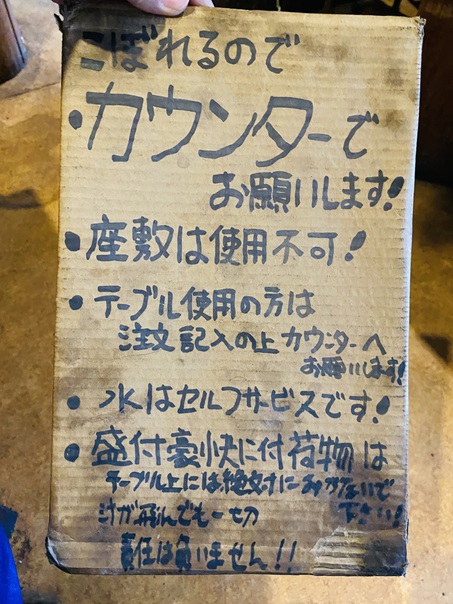 こぼれるので
・カウンターで
お願いします!
・座敷は使用不可!
・テーブル使用の方は
注文記入の上カウンターへ
お願いします!
・水はセルフサービスです!
・盛付豪快に付荷物は
テーブル上には絶対におかないで
下さい!
汁が飛んでも一切
責任は負いません!!